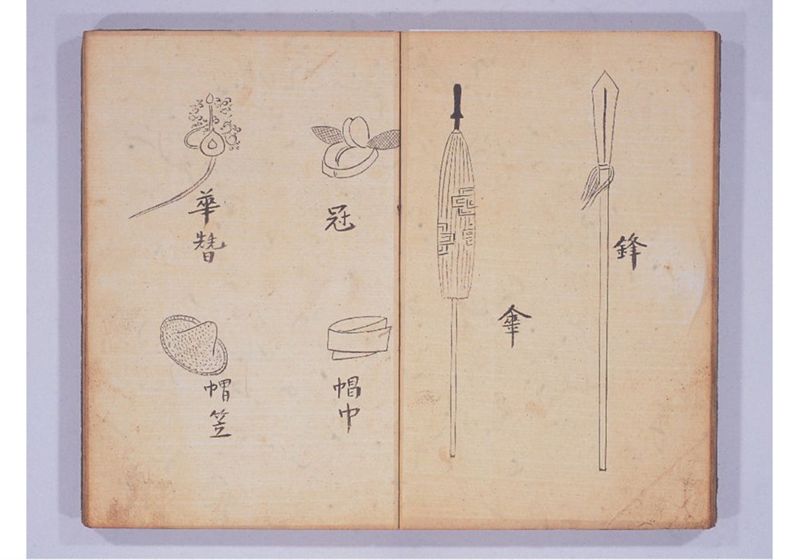 鋒
傘
冠
帽巾
華簪
帽笠